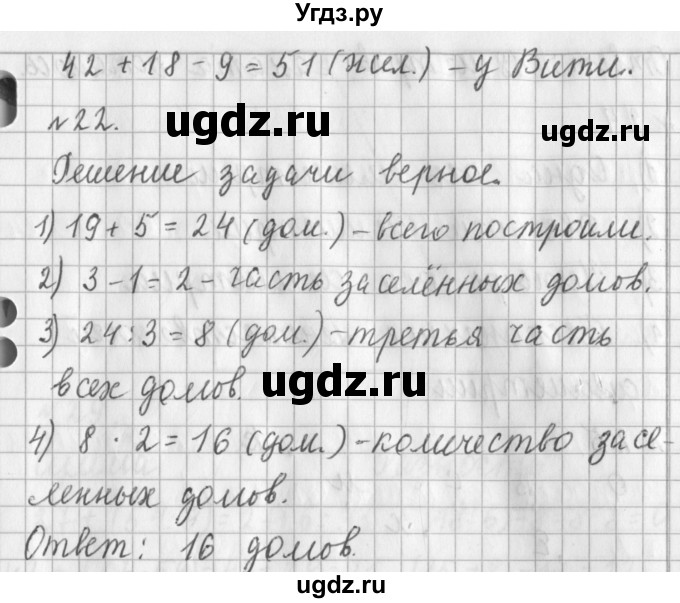 Угдз.ру
42 + 18 - 9 = 51 (жел.) - у Вити.
№22.
ugdz.ru
ugdz.ru
Решение задачи верное.
1) 19 + 5 = 24 (дом.) - всего построили.
2) 3 - 1 = 2 - часть заселённых домов.
3) 24 : 3 = 8 (дом.) - третья часть
всех домов.
ugdz.ru
ugdz.ru
4) 8 · 2 = 16 (дом.) - количество засе-
ленных домов.
Ответ: 16 домов.
ugdz.ru